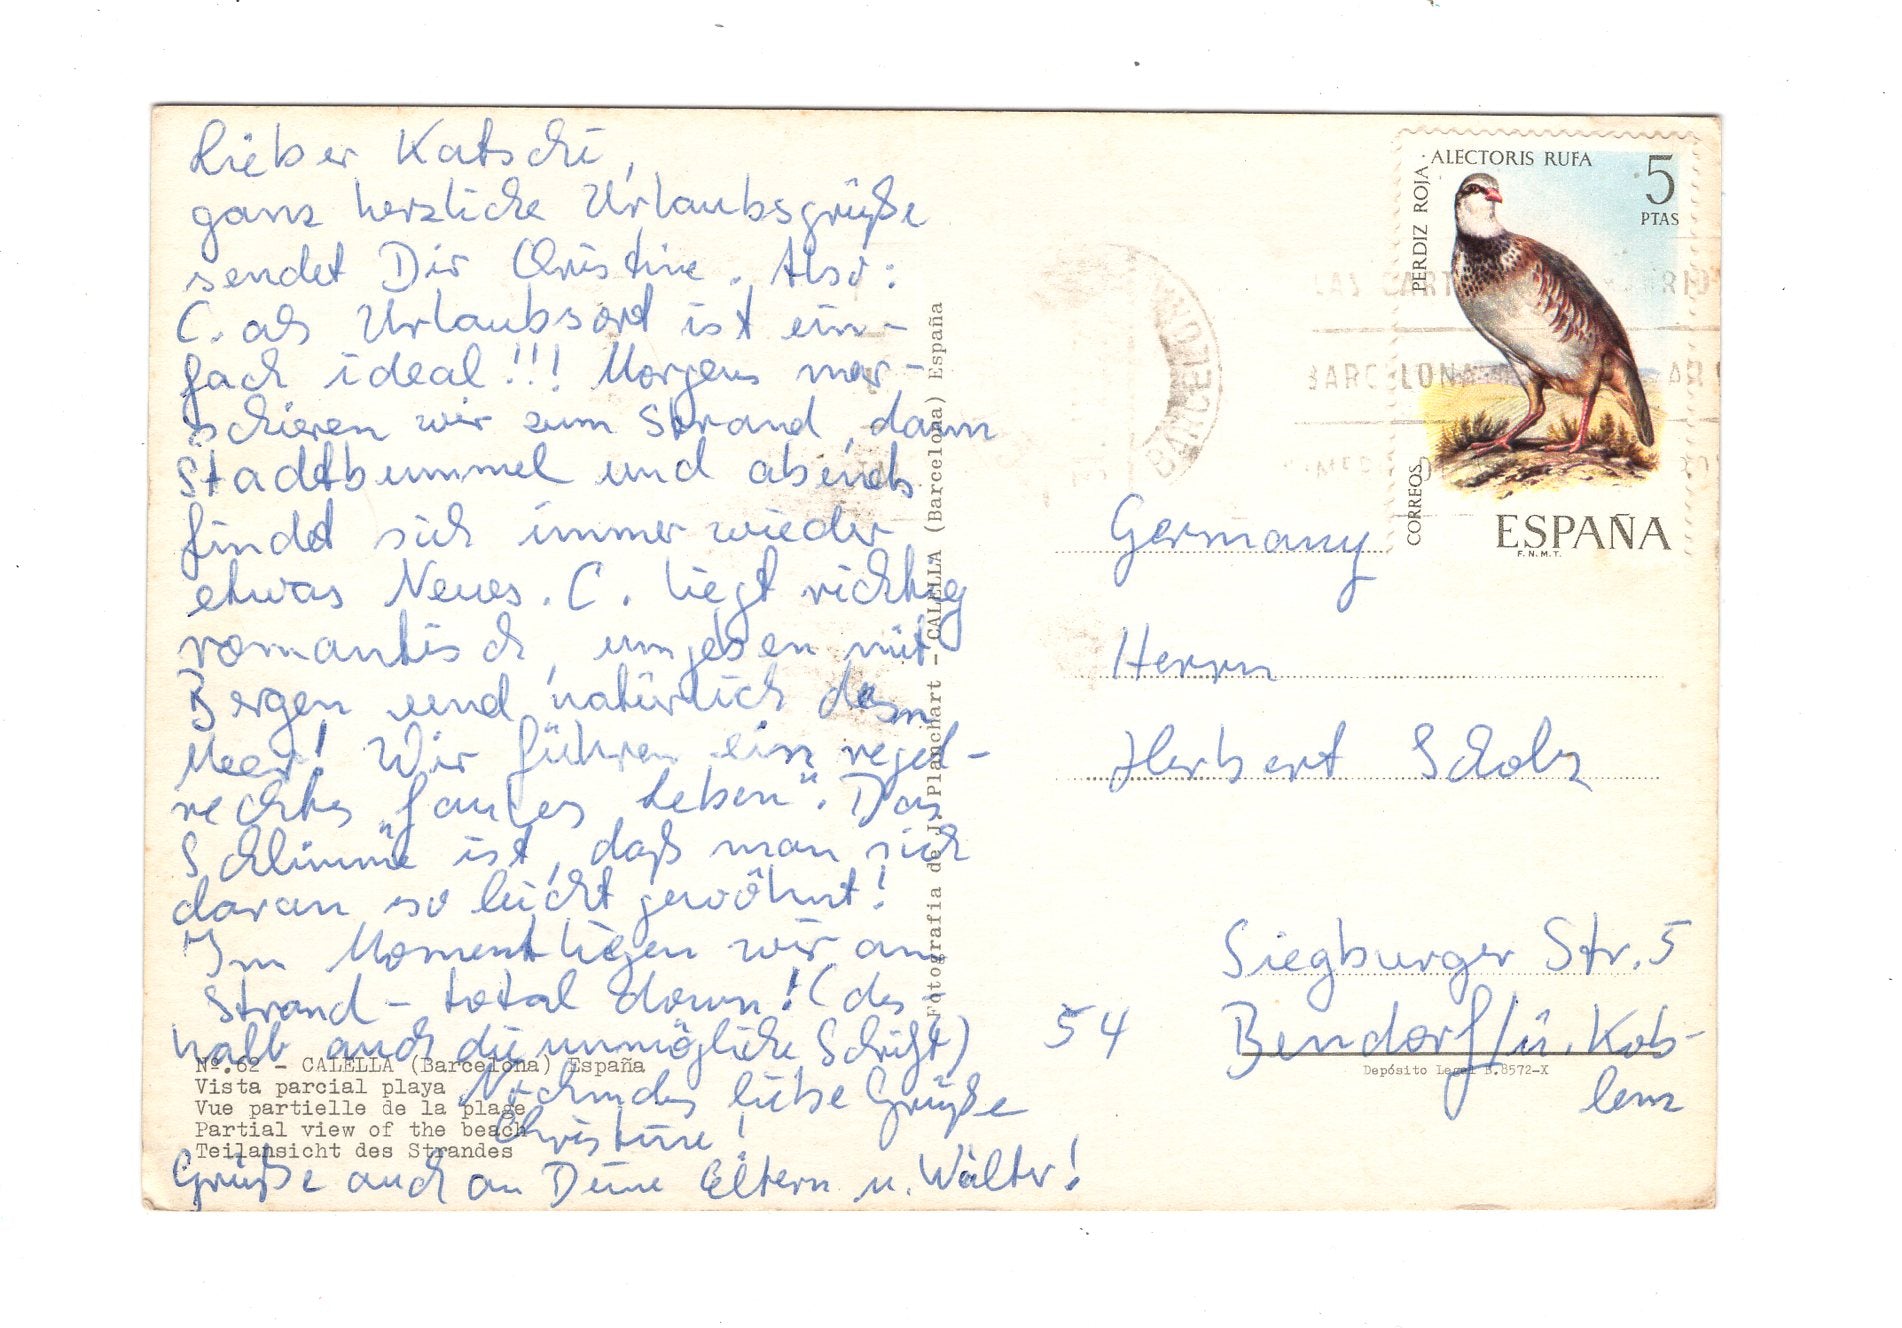 Lieber Katschi,
ganz herzliche Urlaubsgrüße
sendet Dir Christine. Also:
C. als Urlaubsort ist ein-
fach ideal!!! Morgens mar-
schieren wir zum Strand, dann
Stadtbummel und abends
findet sich immer wieder
etwas Neues. C. liegt richtig
romantisch, umgeben mit
Bergen und natürlich dem
Meer! Wir führen ein regel-
rechtes „faules Leben“. Das
Schlimme ist, daß man sich
daran so leicht gewöhnt!
Im Moment liegen wir am
Strand - total down! (des-
halb auch die unmögliche Schrift)
Nochmals liebe Grüße
Christine!
Grüße auch an Deine Eltern u. Walter!
Nº.62 - CALELLA (Barcelona) España
Vista parcial playa
Vue partielle de la plage
Partial view of the beach
Teilansicht des Strandes
Fotografia de J. Planchart - CALELLA (Barcelona) España
ALECTORIS RUFA
PERDIZ ROJA
5
PTAS
CORREOS
ESPAÑA
F.N.M.T.
BARCELONA
BARCELONA
Germany
Herrn
Herbert Scholz
Siegburger Str. 5
54 Bendorf/ü. Kob-
lenz
Depósito Legal B.8572-X